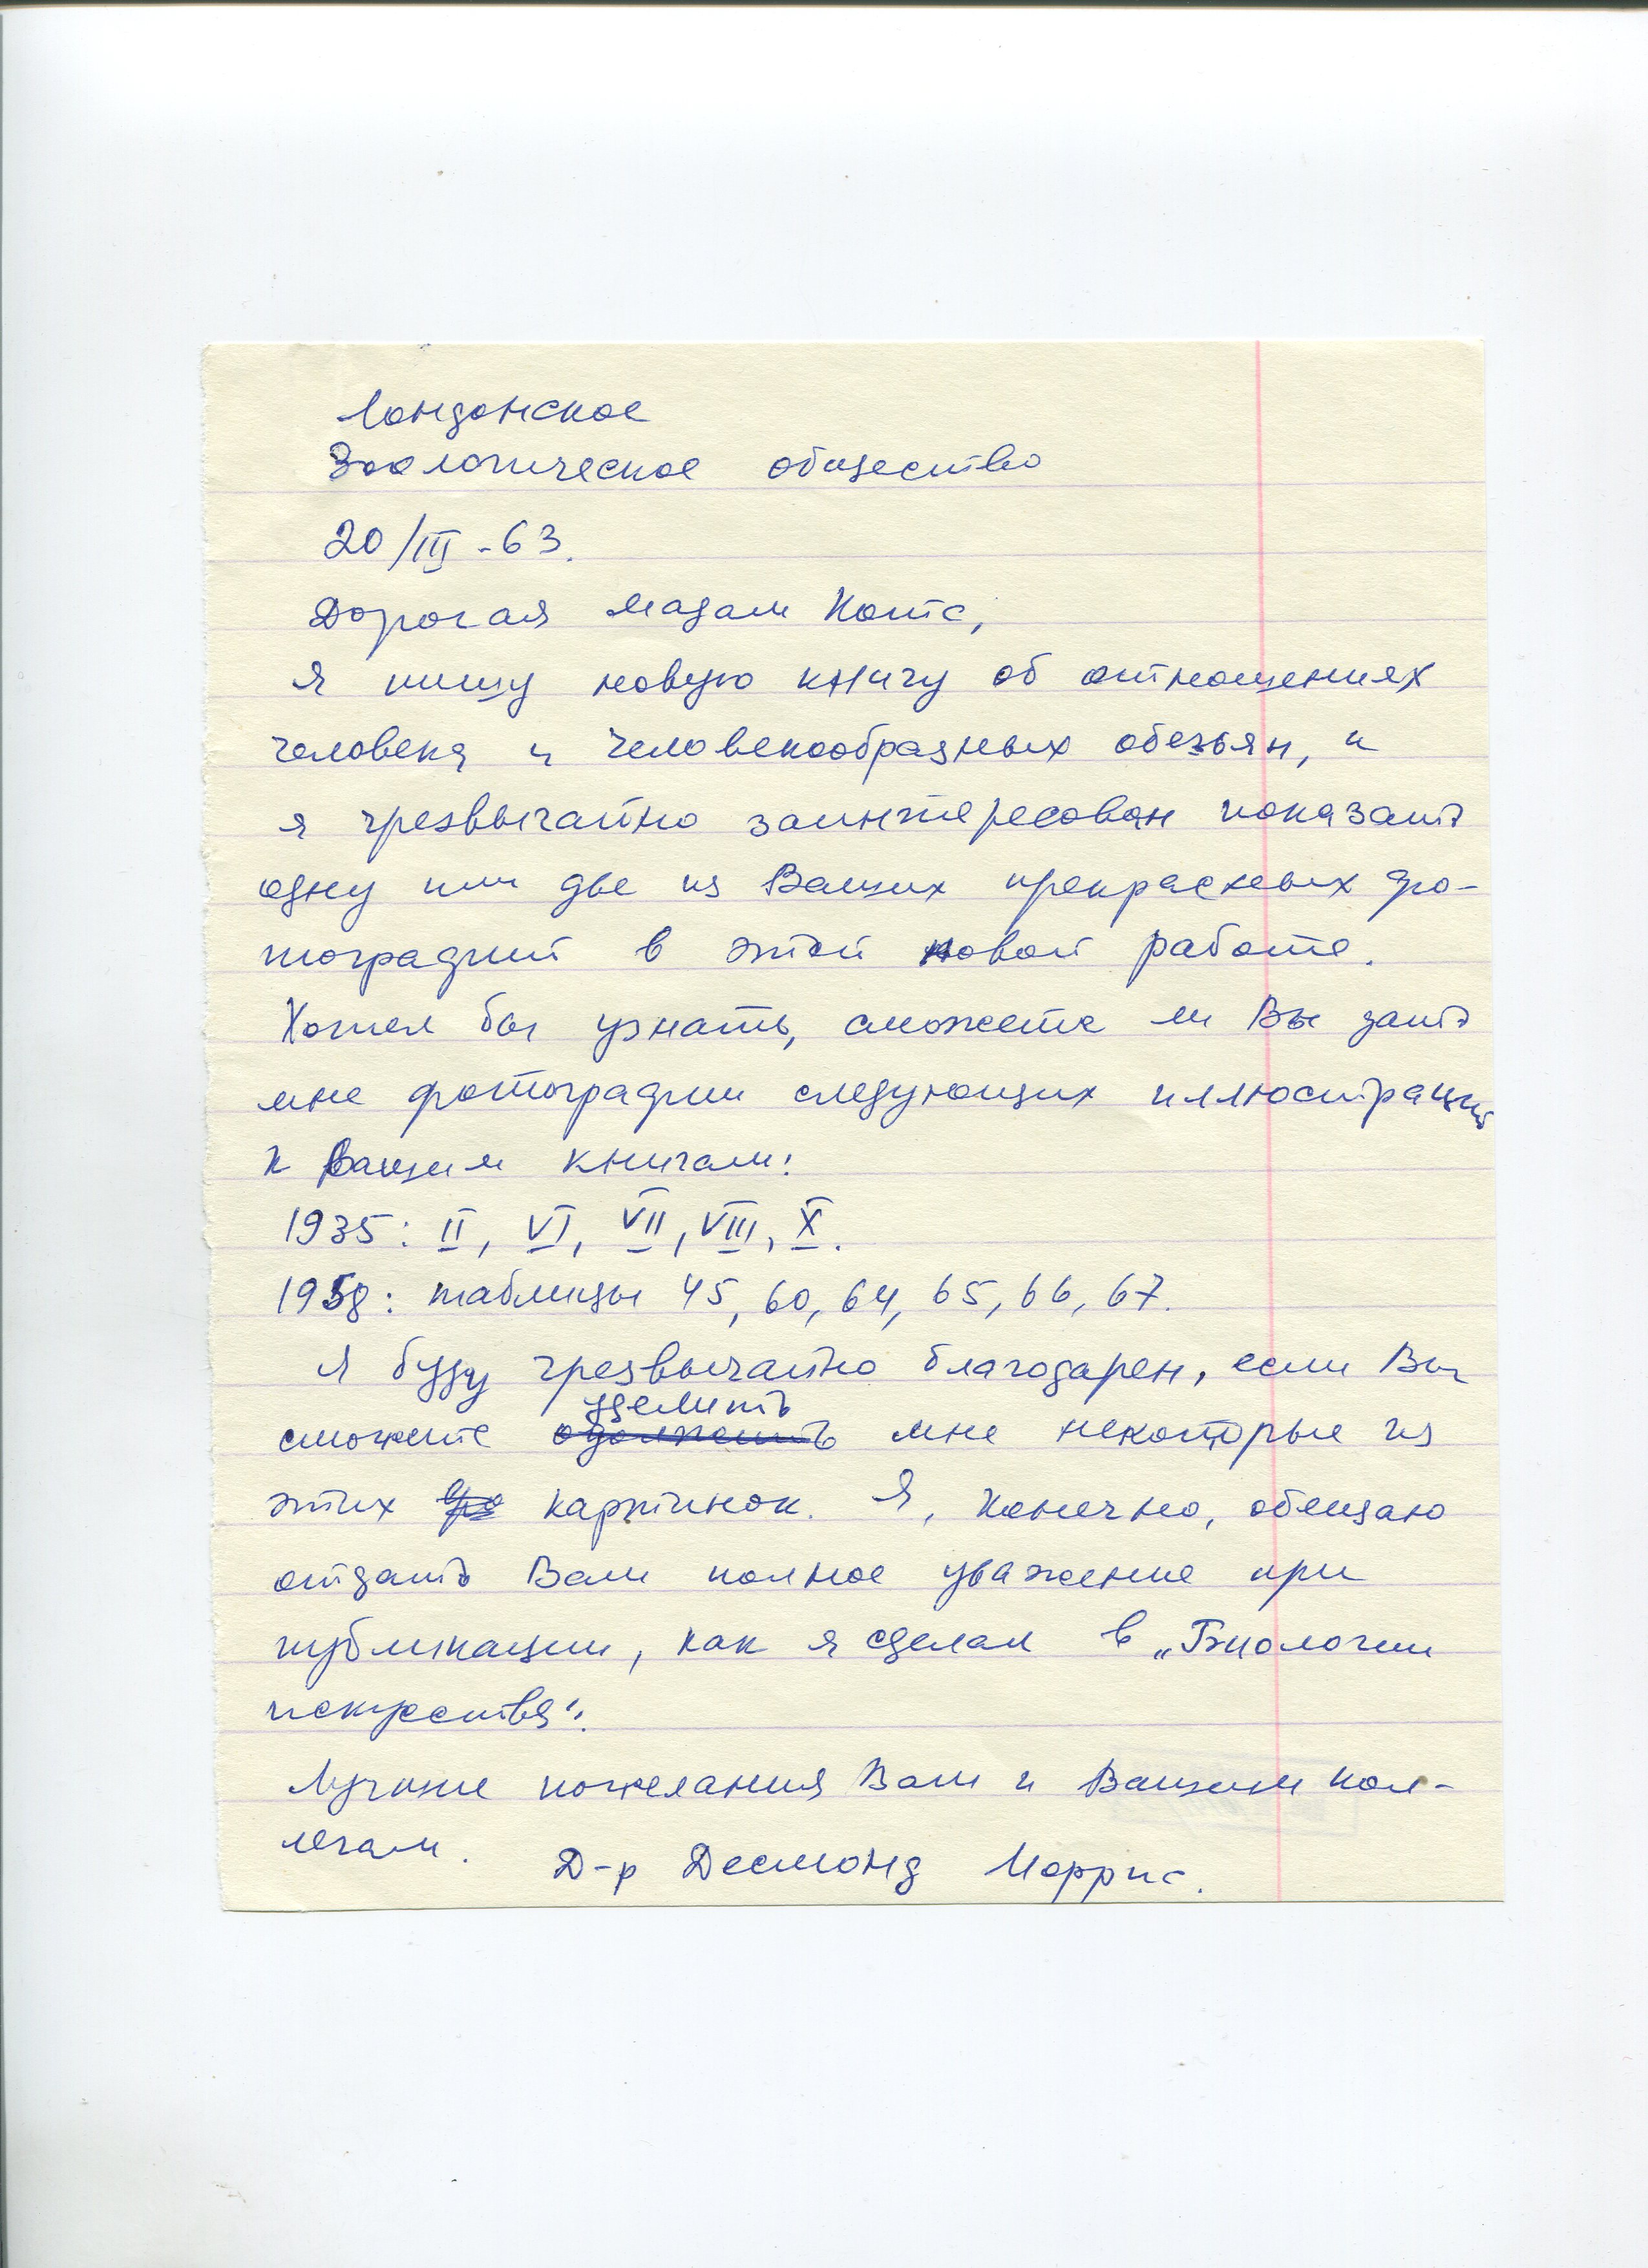 Лондонское
Зоологическое общество
20/III - 63.
Дорогая мадам Котс,
Я пишу новую книгу об отношениях
человека и человекообразных обезьян, и
я чрезвычайно заинтересован показать
одну или две из Ваших прекрасных фо-
тографий в этой новой работе.
Хотел бы узнать, сможете ли Вы дать
мне фотографии следующих иллюстраций
к Вашим книгам:
1935: II, VI, VII, VIII, X.
1958: таблицы 45, 60, 64, 65, 66, 67.
Я буду чрезвычайно благодарен, если Вы
уделить
сможете одолжить мне некоторые из
этих фо картинок. Я, конечно, обещаю
отдать Вам полное уважение при
публикации, как я сделал в „Биологии
искусства".
Лучшие пожелания Вам и Вашим кол-
легам.
Д-р Десмонд Моррис.